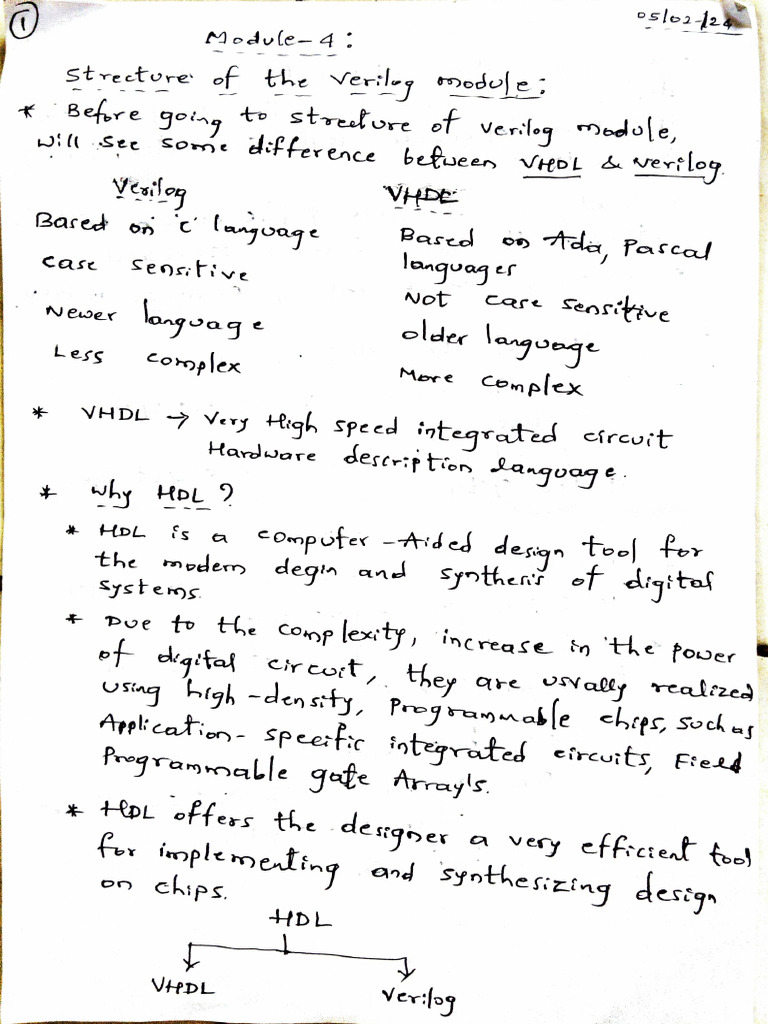 1
05/02/24
Module-4:
Strecture of the Verilog module:
* Before going to strecture of verilog module,
will see some difference between VHDL & verilog.
Verilog VHDL
Based on 'c' language Based on Ada, Pascal
languages
case sensitive Not case sensitive
Newer language older language
Less complex More complex
* VHDL → Very High speed integrated circuit
Hardware description language.
* why HDL ?
* HDL is a computer-Aided design tool for
the modern degin and synthesis of digital
systems.
* Due to the complexity, increase in the power
of digital circuit, they are usually realized
using high-density, programmable chips, such as
Application-specific integrated circuits, Field
Programmable gate Array's.
* HDL offers the designer a very efficient tool
for implementing and synthesizing design
on chips.
HDL
VHDL Verilog